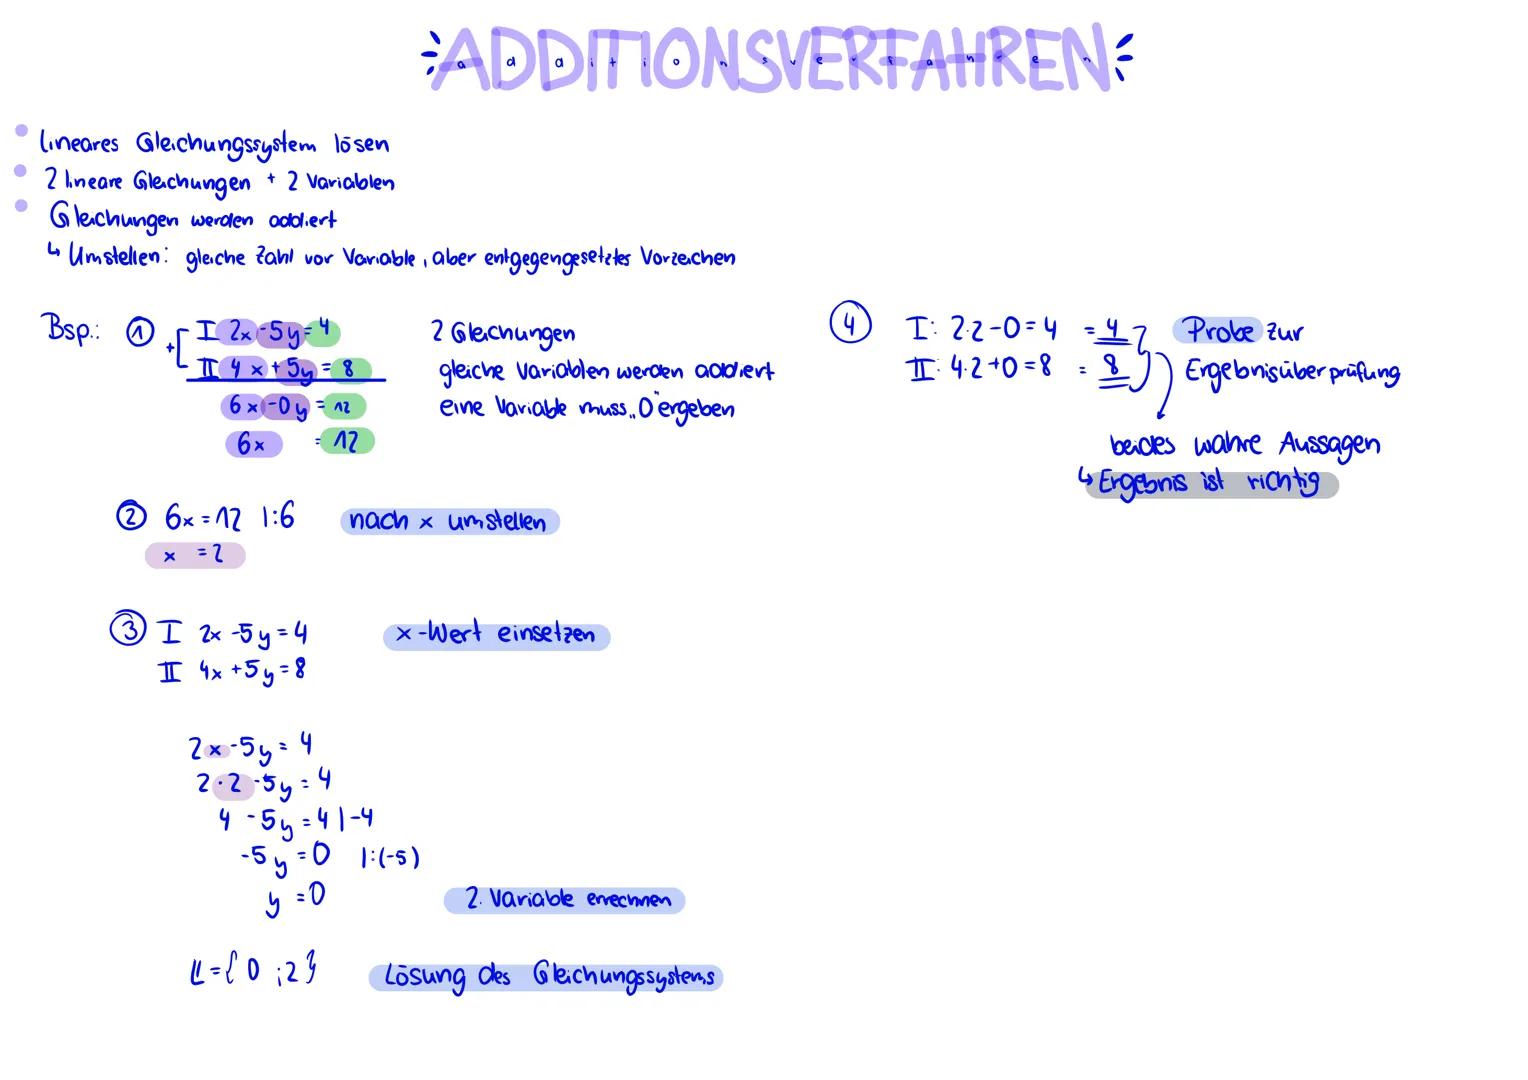 ADDITIONSVERFAHREN
additionsverfahren
lineares Gleichungssystem lösen
2 lineare Gleichungen + 2 Variablen
Gleichungen werden addiert
↳ Umstellen: gleiche Zahl vor Variable, aber entgegengesetztes Vorzeichen
Bsp.: ① +[ I 2x -5y = 4
2 Gleichungen
II 4x +5y = 8
gleiche Variablen werden addiert
6x -0y = 12
eine Variable muss „0" ergeben
6x = 12
② 6x = 12 |:6
nach x umstellen
x = 2
③ I 2x -5y = 4
x-Wert einsetzen
II 4x +5y = 8
2x -5y = 4
2·2 -5y = 4
4 -5y = 4 |-4
-5y = 0 |:(-5)
y = 0
2. Variable errechnen
L = { 0 ; 2 }
Lösung des Gleichungssystems
④ I: 2·2 - 0 = 4 = 4
Probe zur
II: 4·2 + 0 = 8 = 8
Ergebnisüberprüfung
beides wahre Aussagen
↳ Ergebnis ist richtig